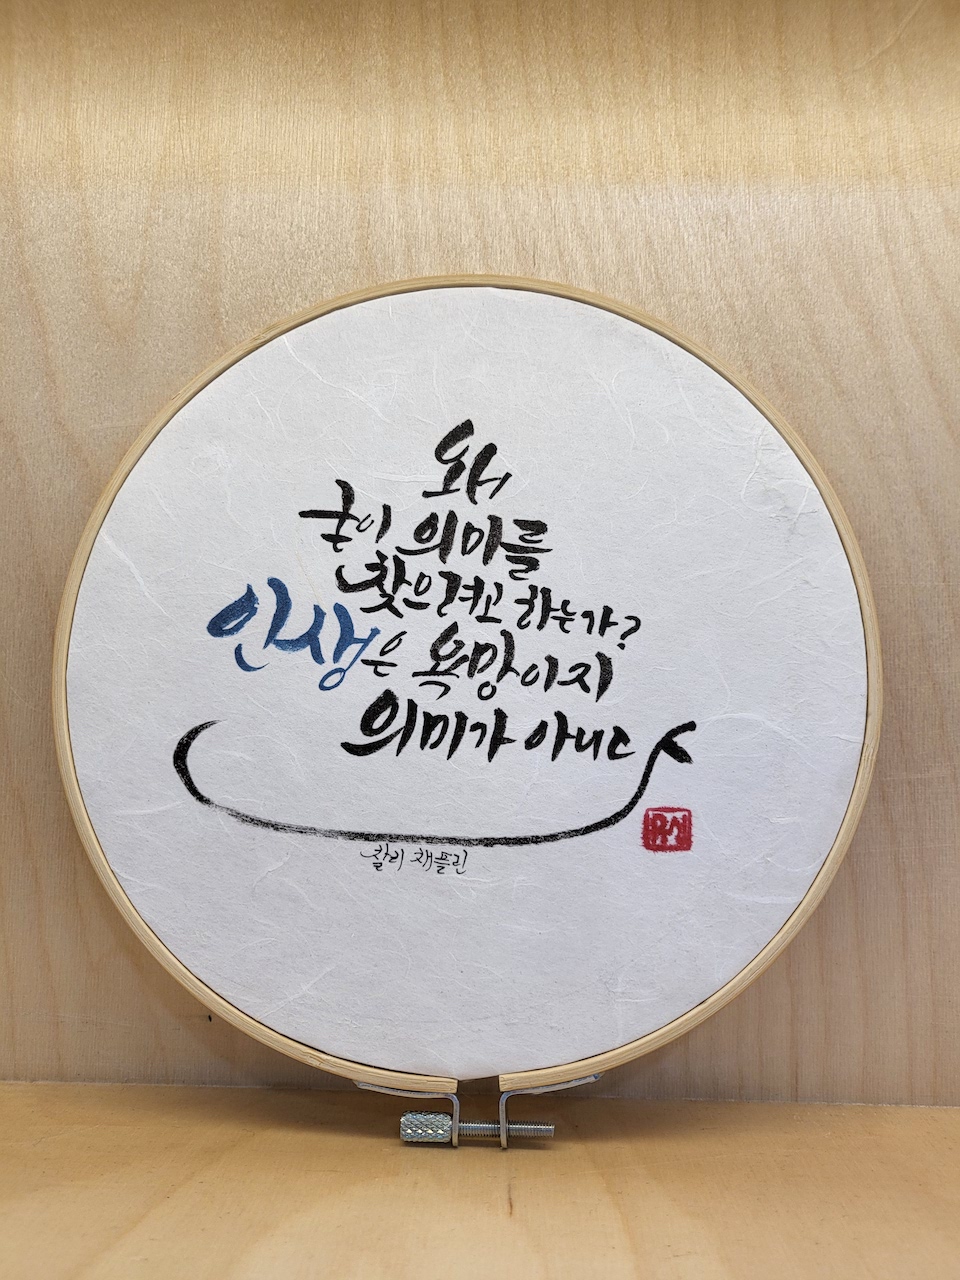 왜
굳이 의미를
찾으려고 하는가?
인생은 욕망이지
의미가 아니다
찰리 채플린